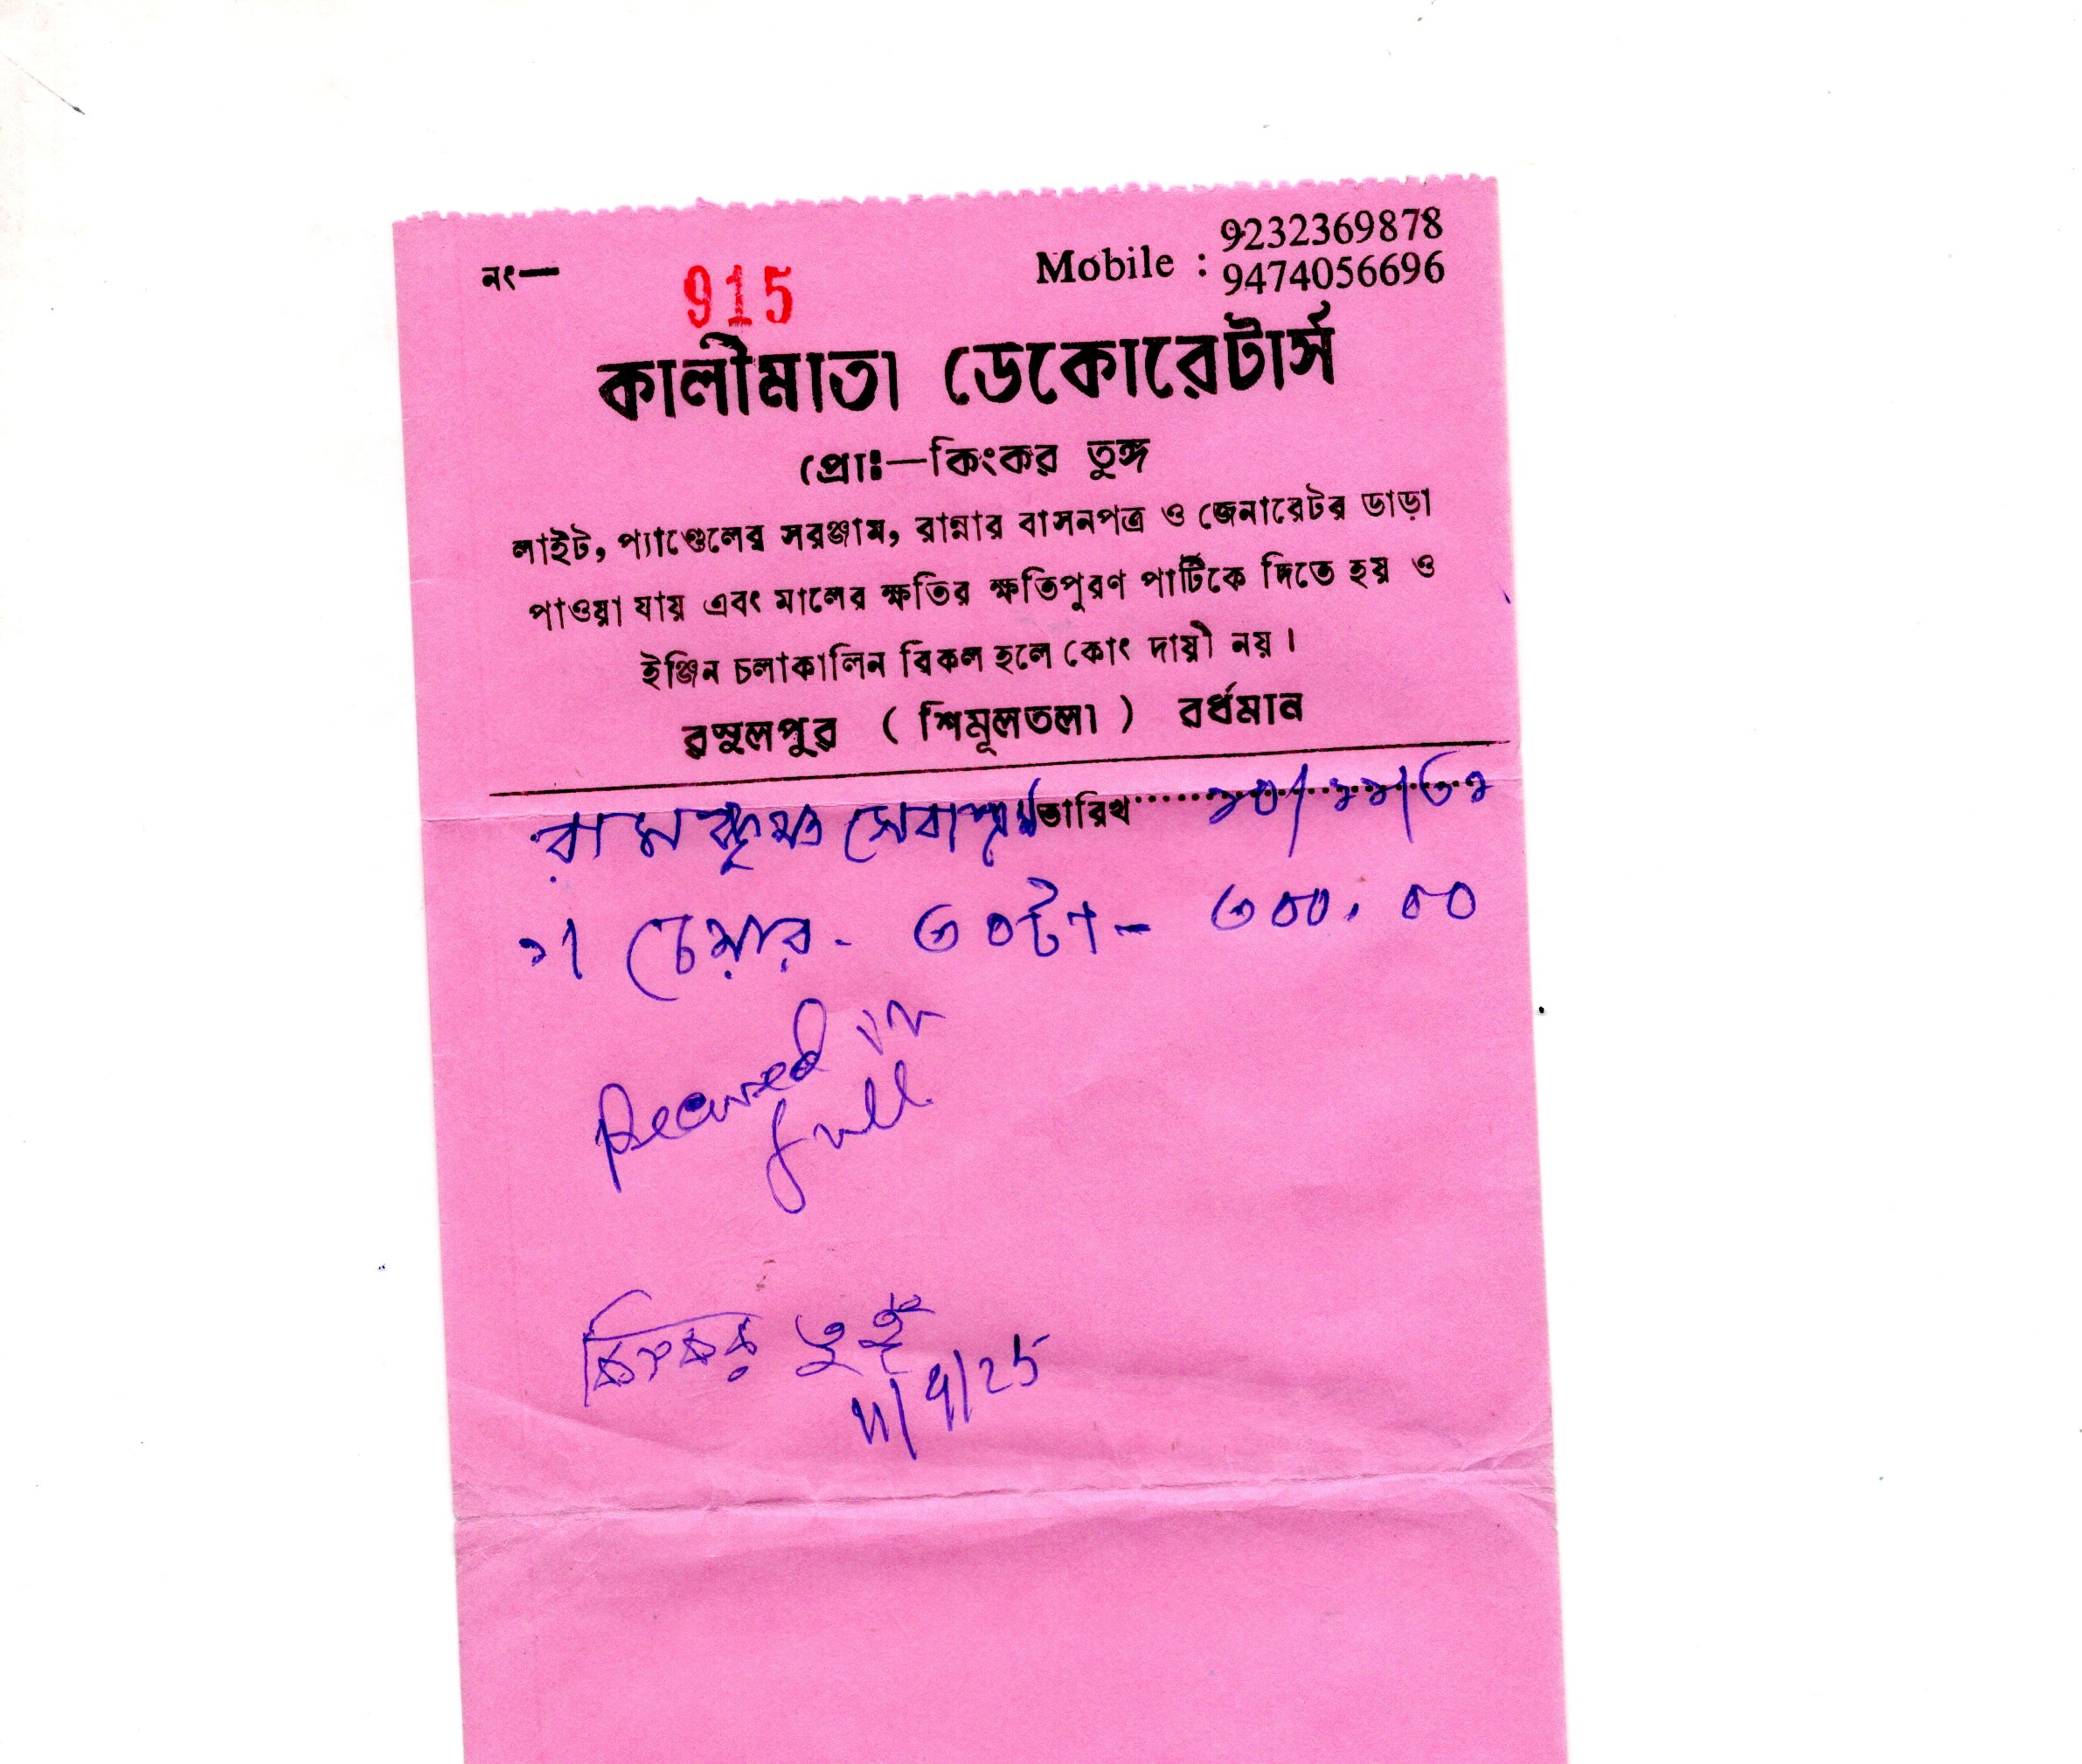 নং— 915 Mobile : 9232369878
9474056696
কালীমাতা ডেকোরেটার্স
প্রোঃ—কিংকর তুঙ্গ
লাইট, প্যাণ্ডেলের সরঞ্জাম, রান্নার বাসনপত্র ও জেনারেটর ভাড়া
পাওয়া যায় এবং মালের ক্ষতির ক্ষতিপুরণ পার্টিকে দিতে হয় ও
ইঞ্জিন চলাকালিন বিকল হলে কোং দায়ী নয় ।
রসুলপুর ( শিমূলতলা ) বর্ধমান
রামকৃষ্ণ সেবাশ্রম তারিখ
১। চেয়ার - ৩০টা - ৩০০.০০
Received in
full
কিংকর তুঙ্গ